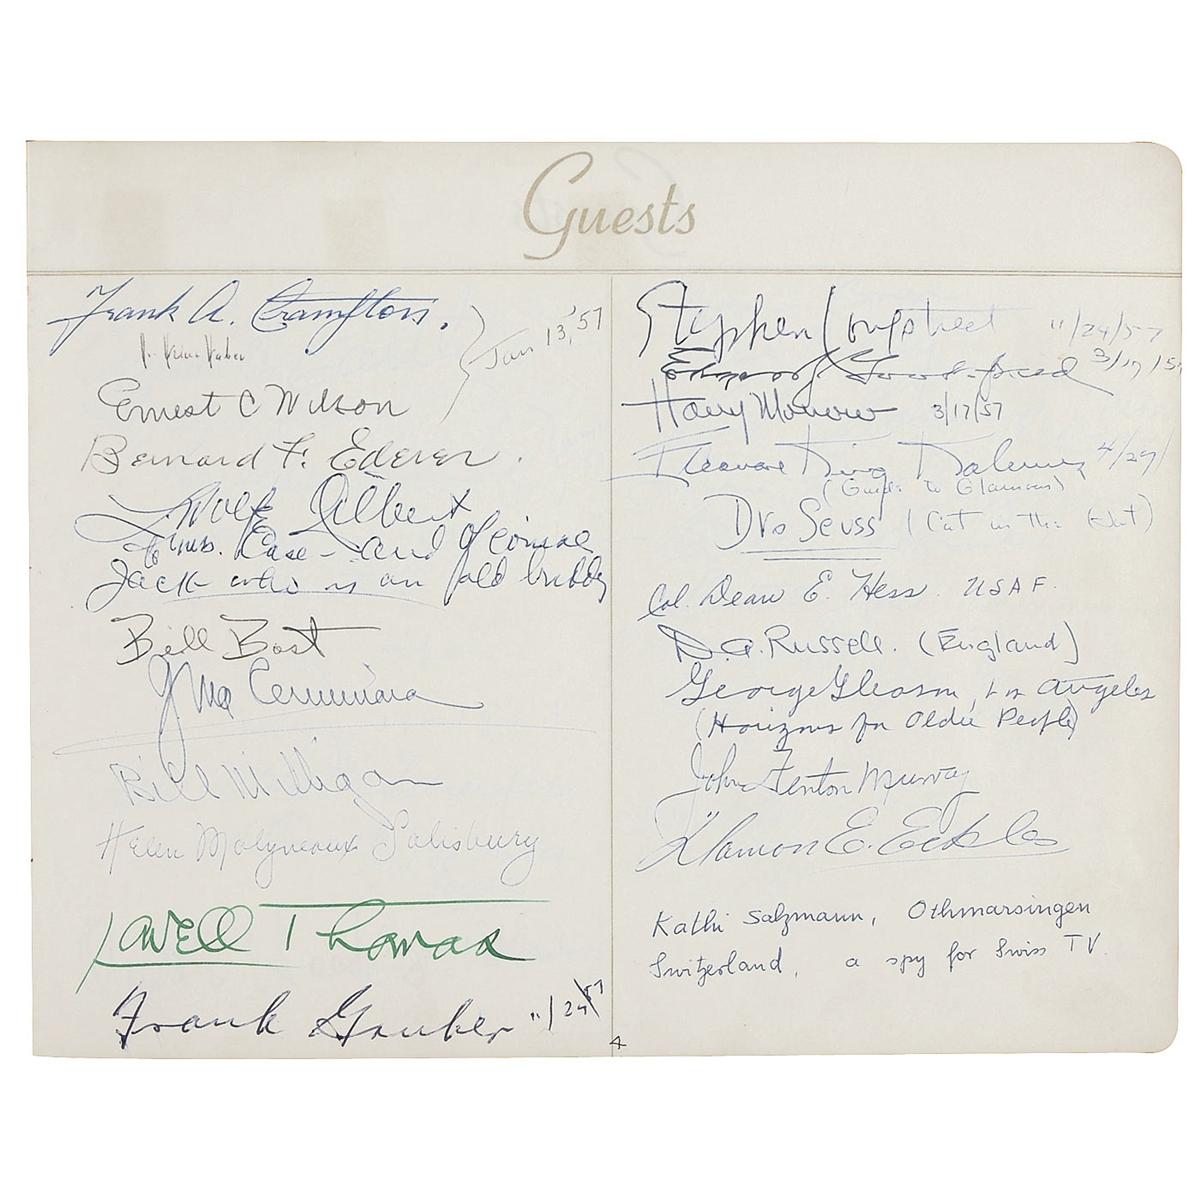 Guests
Frank A. Crampton.
Jan 13, '57
Ernest C Wilson
Bernard F. Ederer.
L. Wolfe Gilbert
to Mrs. Case - and of course
Jack who is an old buddy
Bill Bost
Gina Cerminara
Bill Milligan
Helen Molyneaux Salisbury
Lowell Thomas
Frank Gruber 11/24/57
4
Stephen Longstreet 11/24/57
3/17/57
Harry Morrow 3/17/57
Eleanore King 4/29/
(Guide to Glamour)
Dr. Seuss (Cat in the Hat)
Col. Dean E. Hess. USAF.
D. A. Russell. (England)
George Gleason, Los Angeles
(Horizons for Older People)
John Fenton Murray
E. Eckles
Kathi Salzmann, Othmarsingen
Switzerland, a spy for Swiss TV.